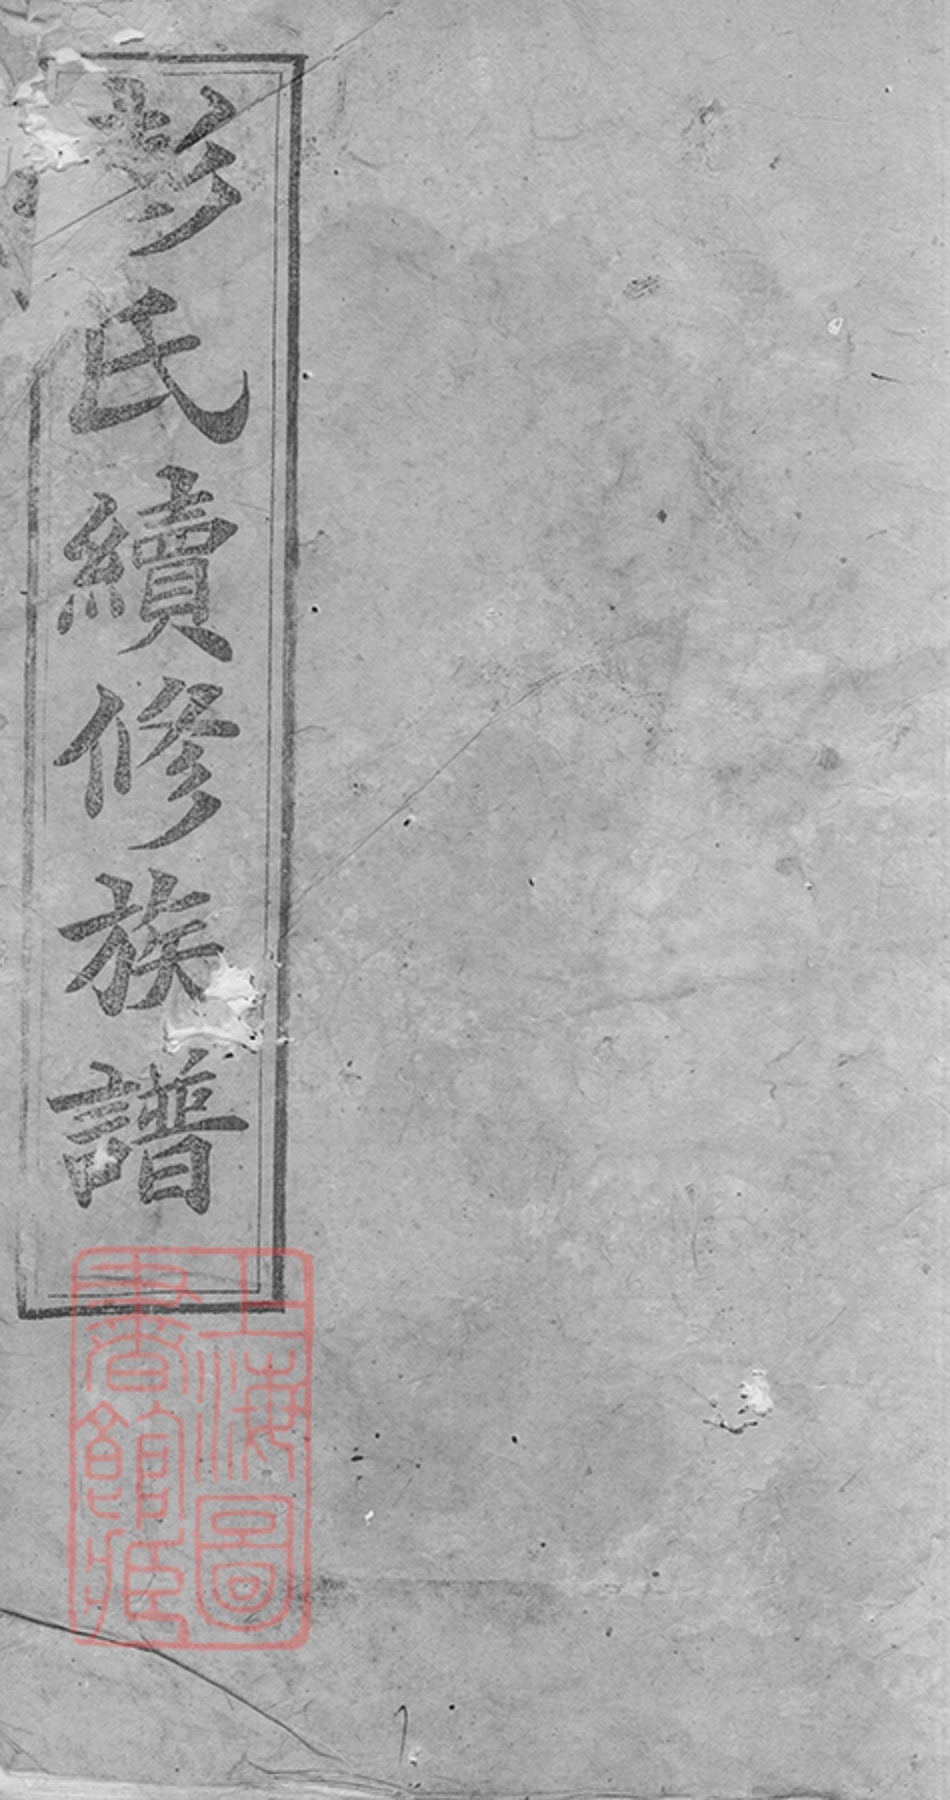 彭氏續修族譜
上海圖
書館藏